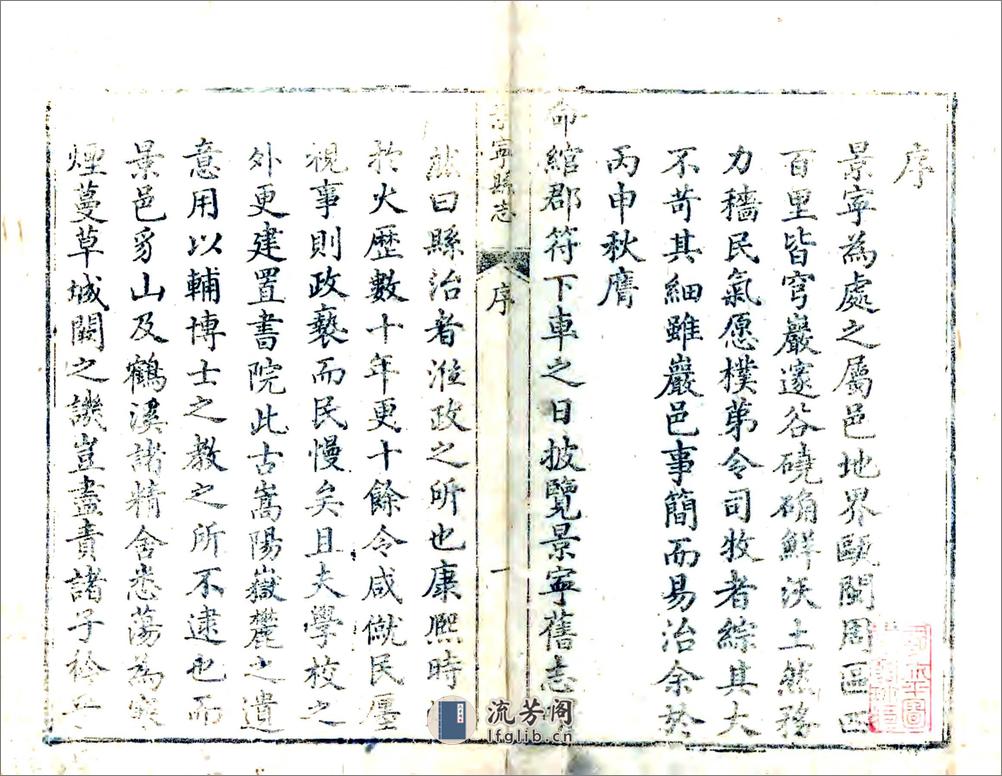 序
景寧為處之屬邑地界甌閩周區四
百里皆穹巖邃谷磽确鮮沃土然務
力穡民氣愿樸苐令司牧者綜其大
不苛其細雖巖邑事簡而易治余於
丙申秋膺
命綰郡符下車之日披覽景寧舊志
景寧縣志
序
一
然曰縣治者涖政之所也康熙時
於火歷數十年更十餘令咸僦民廛
視事則政褻而民慢矣且夫學校之
外更建置書院此古嵩陽嶽麓之遺
意用以輔博士之教之所不逮也而
景邑豸山及鶴溪諸精舍悉蕩為寒
煙蔓草城闕之譏豈盡責諸子衿之
流芳阁
lfglib.cn